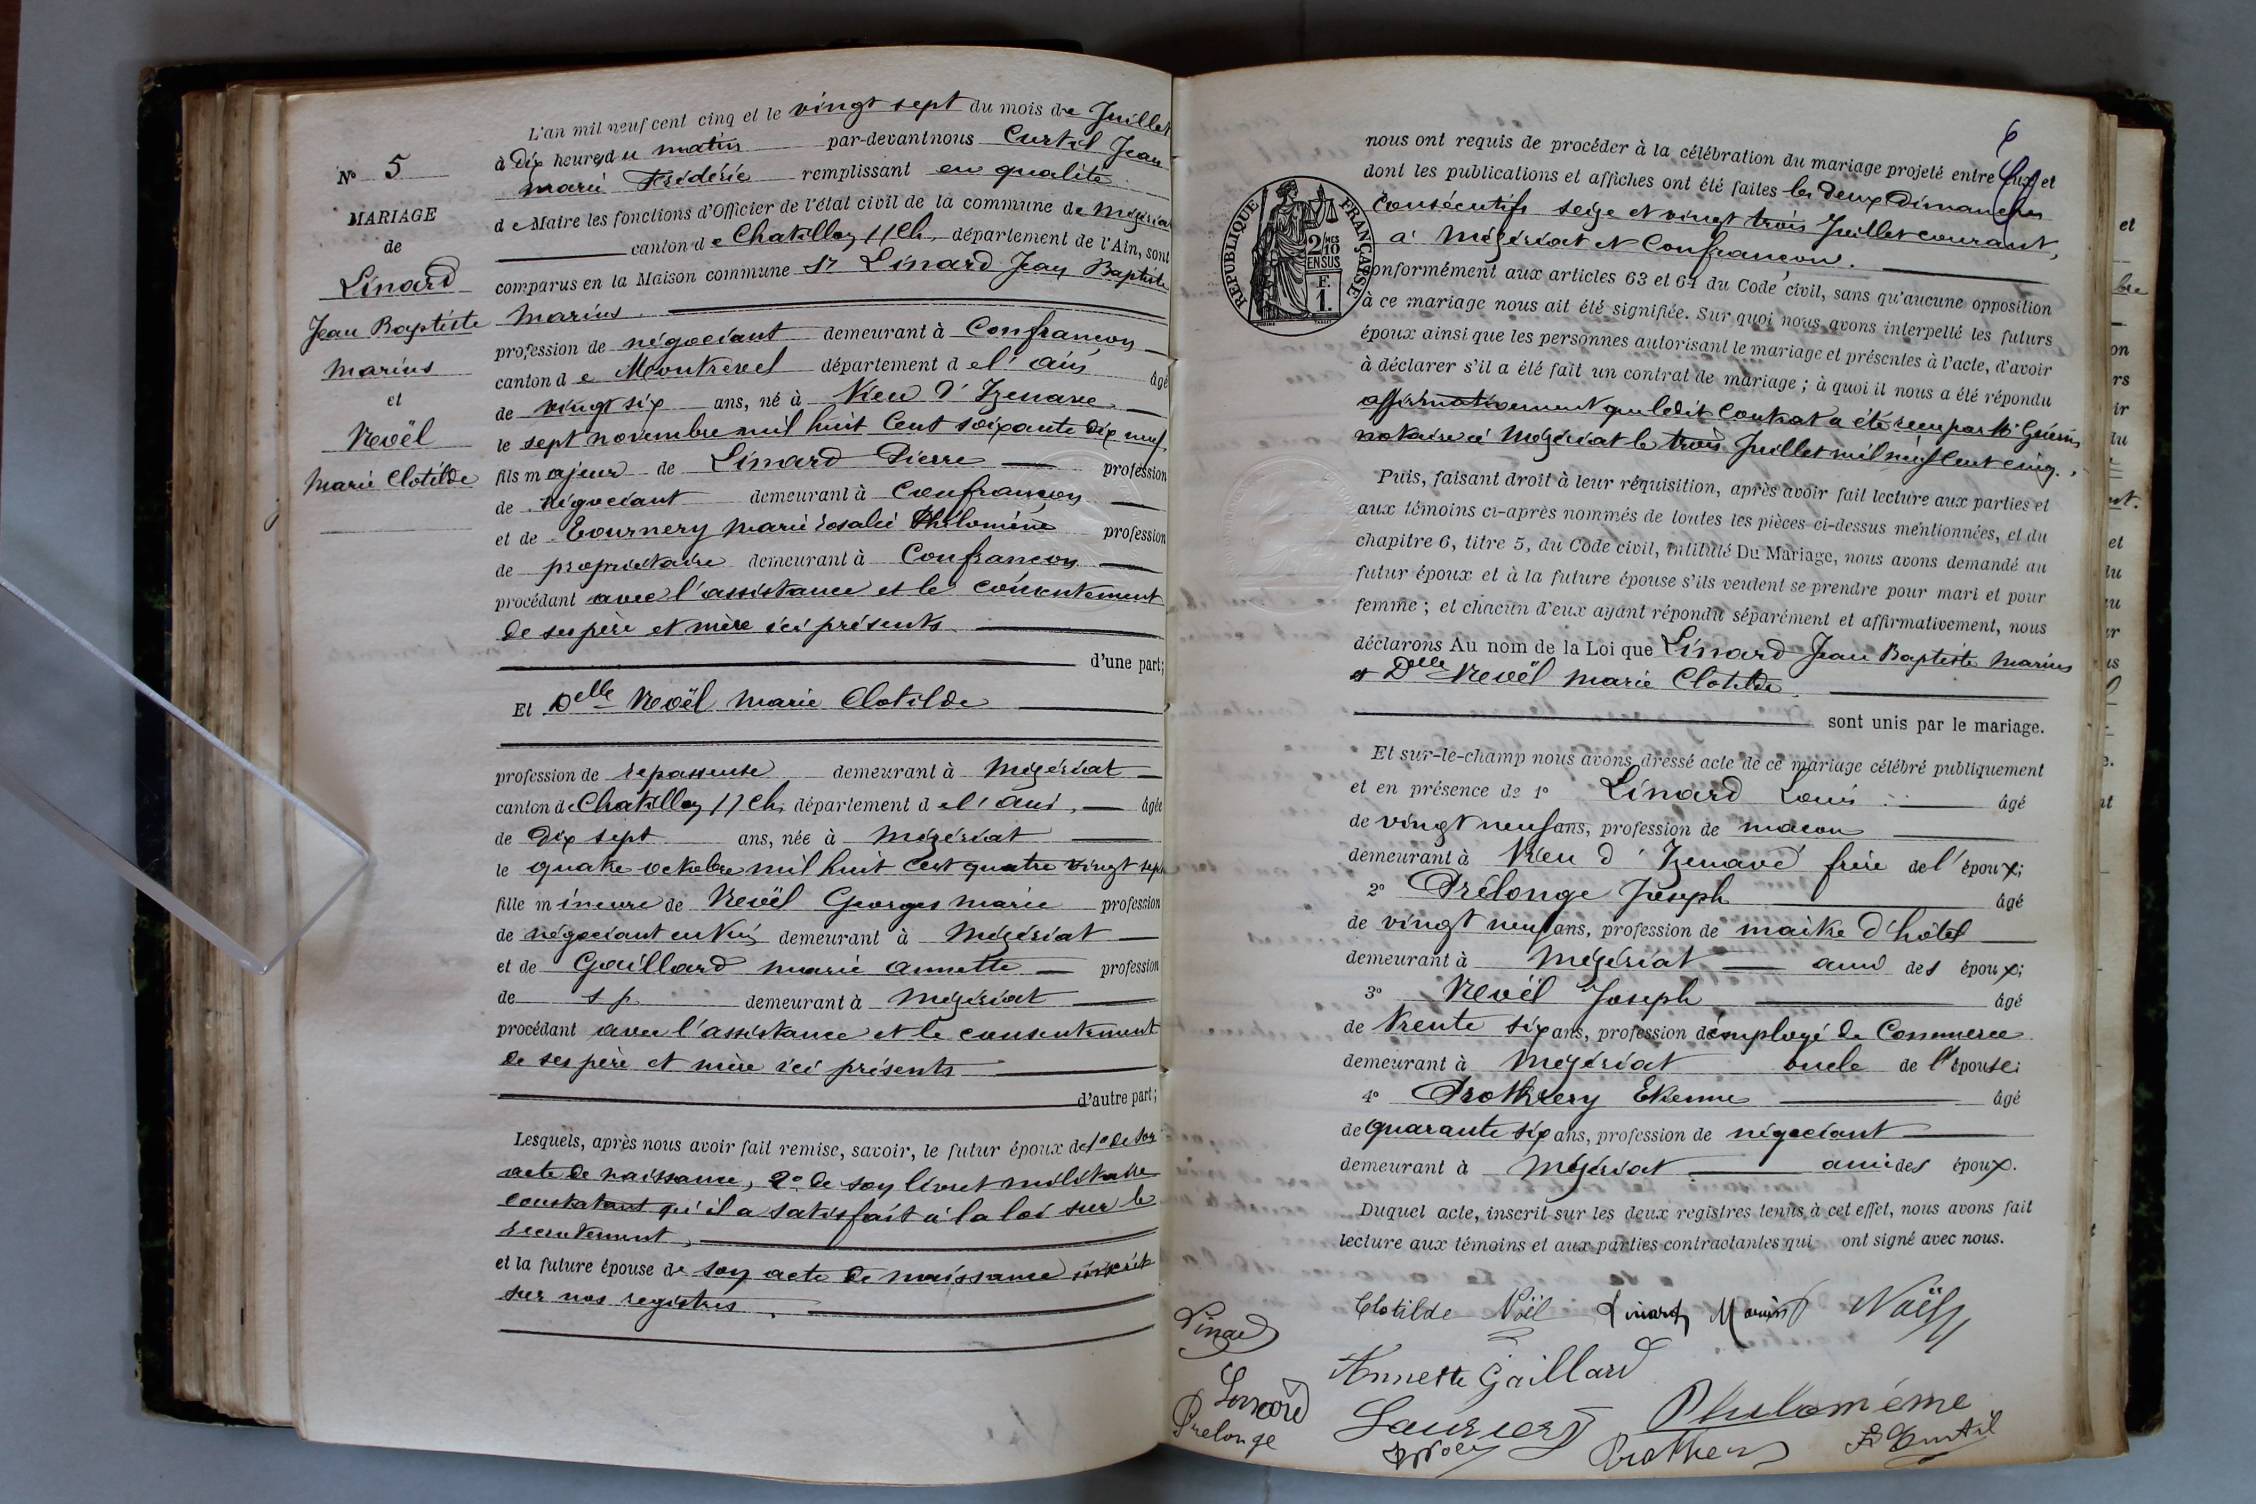 N° 5
MARIAGE
de
Linard
Jean Baptiste
Marius
et
Nevël
Marie Clotilde
L'an mil neuf cent cinq et le vingt sept du mois de Juillet
à Dix heures du matin par-devant nous Curtil Jean
Marie Frédéric remplissant en qualité
de Maire les fonctions d'Officier de l'état civil de la commune de Mézériat
canton de Chatillon s/ Ch. département de l'Ain, sont
comparus en la Maison commune Sr Linard Jean Baptiste
Marius.
profession de négociant demeurant à Confrançon
canton de Montrevel département de l'ain âgé
de vingt six ans, né à Vieu d'Izenave
le sept novembre mil huit cent soixante dix neuf
fils majeur de Linard Pierre profession
de négociant demeurant à Confrançon
et de Tournery Marie rosalie Philomène profession
de propriétaire demeurant à Confrançon
procédant avec l'assistance et le consentement
de ses père et mère ici présents
d'une part;
Et Delle Nevël Marie Clotilde
profession de repasseuse demeurant à Mézériat
canton de Chatillon s/ Ch. département de l'ain, âgée
de Dix sept ans, née à Mézériat
le quatre octobre mil huit cent quatre vingt sept
fille mineure de Nevël Georges Marie profession
de négociant en vins demeurant à Mézériat
et de Gaillard Marie Annette profession
de s p demeurant à Mézériat
procédant avec l'assistance et le consentement
de ses père et mère ici présents
d'autre part;
Lesquels, après nous avoir fait remise, savoir, le futur époux de 1° de son
acte de naissance, 2° de son livret militaire
constatant qu'il a satisfait à la loi sur le
recrutement,
et la future épouse de son acte de naissance inscrit
sur nos registres.
6
nous ont requis de procéder à la célébration du mariage projeté entre Eux et
dont les publications et affiches ont été faites les deux Dimanches
consécutifs seize et vingt trois Juillet courant,
à Mézériat et Confrançon.
REPUBLIQUE FRANÇAISE
2 MES
10
EN SUS
E.
1.
conformément aux articles 63 et 64 du Code civil, sans qu'aucune opposition
à ce mariage nous ait été signifiée. Sur quoi nous avons interpellé les futurs
époux ainsi que les personnes autorisant le mariage et présentes à l'acte, d'avoir
à déclarer s'il a été fait un contrat de mariage ; à quoi il nous a été répondu
affirmativement que ledit contrat a été reçu par Me Guérin
notaire à Mézériat le trois Juillet mil neuf cent cinq.
Puis, faisant droit à leur réquisition, après avoir fait lecture aux parties et
aux témoins ci-après nommés de toutes les pièces ci-dessus mentionnées, et du
chapitre 6, titre 5, du Code civil, intitulé Du Mariage, nous avons demandé au
futur époux et à la future épouse s'ils veulent se prendre pour mari et pour
femme ; et chacun d'eux ayant répondu séparément et affirmativement, nous
déclarons Au nom de la Loi que Linard Jean Baptiste Marius
et Delle Nevël Marie Clotilde.
sont unis par le mariage.
Et sur-le-champ nous avons dressé acte de ce mariage célébré publiquement
et en présence de 1° Linard Louis âgé
de vingt neuf ans, profession de maçon
demeurant à Vieu d'Izenave frère de l'époux;
2° Prélonge Joseph âgé
de vingt neuf ans, profession de maître d'hôtel
demeurant à Mézériat ami des époux;
3° Nevël Joseph âgé
de trente six ans, profession d'employé de Commerce
demeurant à Mézériat oncle de l'épouse;
4° Prothery Etienne âgé
de quarante six ans, profession de négociant
demeurant à Mézériat ami des époux.
Duquel acte, inscrit sur les deux registres tenus à cet effet, nous avons fait
lecture aux témoins et aux parties contractantes qui ont signé avec nous.
Clotilde Noël Linard Marius Noël
Linard
Annette Gaillard
Linard
Philomène
Prelonge